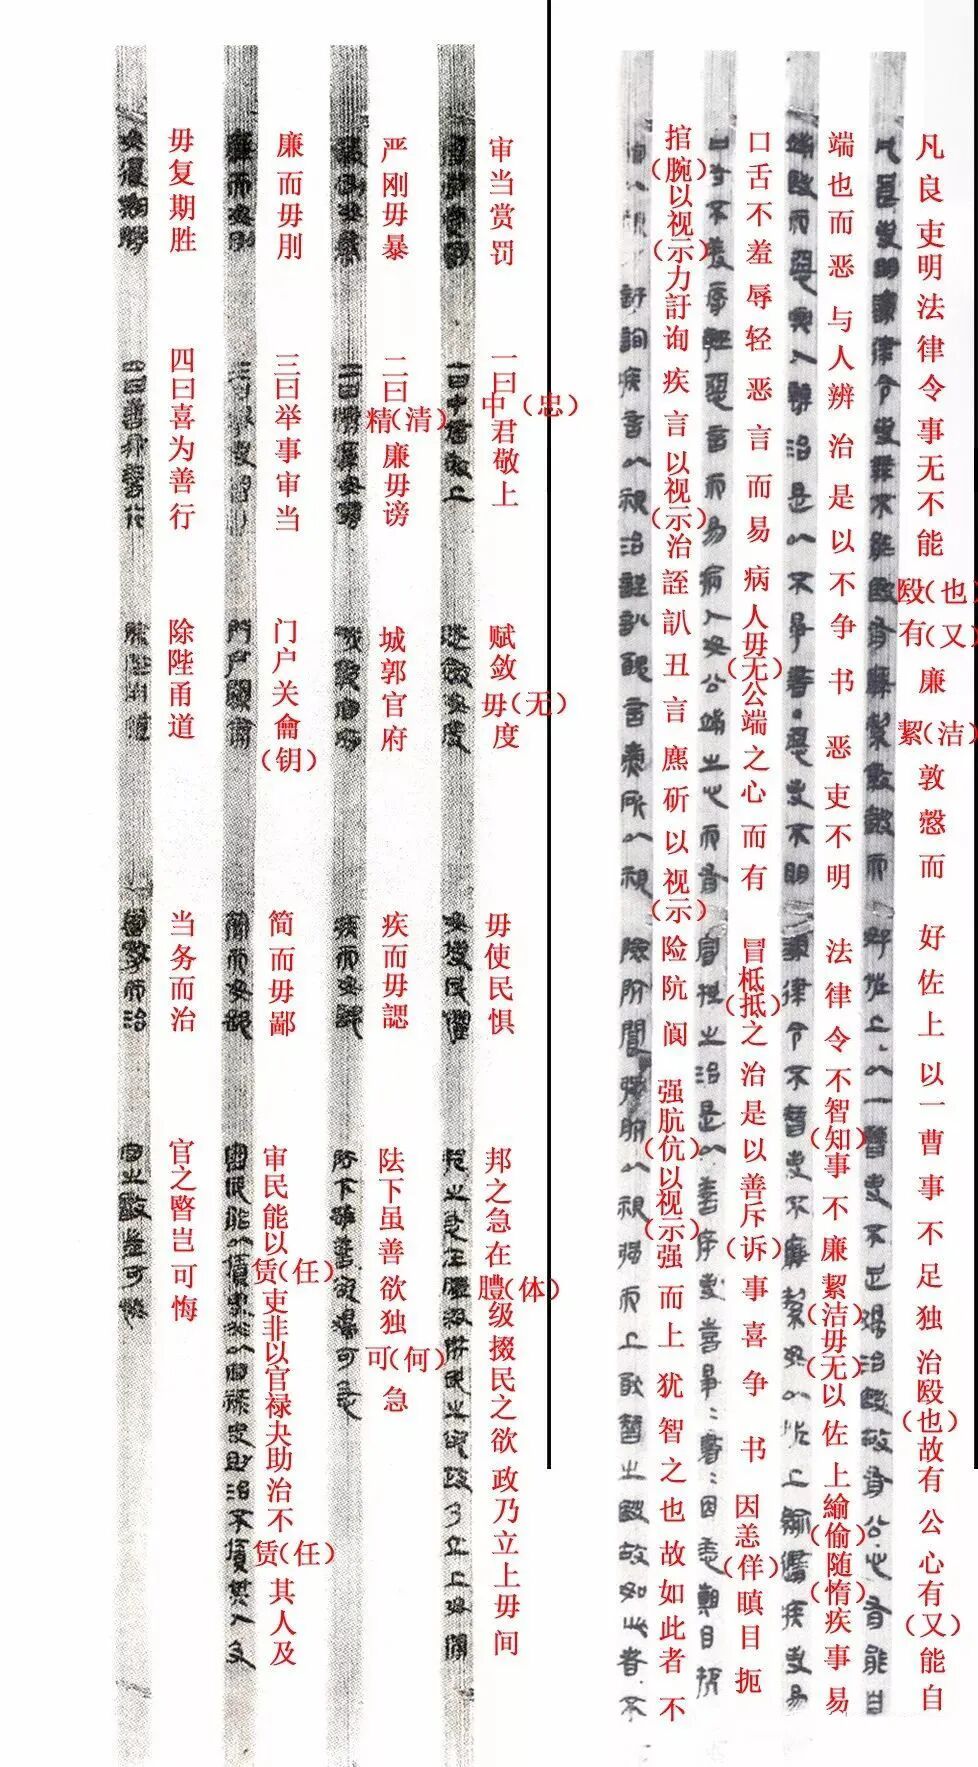 凡良吏明法律令事无不能殹（也）有（又）廉絜（洁）敦慤而好佐上以一曹事不足独治殹（也）故有公心有（又）能自
端也而恶与人辨治是以不争书恶吏不明法律令不智（知）事不廉絜（洁）毋（无）以佐上緰（偷）随（惰）疾事易
口舌不羞辱轻恶言而易病人毋（无）公端之心而有冒柢（抵）之治是以善斥（诉）事喜争书因恙（佯）瞋目扼
捾（腕）以视（示）力訏询疾言以视（示）治誈訙丑言麃斫以视（示）险阬阆强肮（伉）以视（示）强而上犹智之也故如此者不
审当赏罚
严刚毋暴
廉而毋刖
毋复期胜
一曰中（忠）君敬上
二曰精（清）廉毋谤
三曰举事审当
四曰喜为善行
赋敛毋（无）度
城郭官府
门户关龠（钥）
除陛甬道
毋使民惧
疾而毋諰
简而毋鄙
当务而治
邦之急在軆（体）级掇民之欲政乃立上毋间
阹下虽善欲独可（何）急
审民能以赁（任）吏非以官禄夬助治不赁（任）其人及
官之暋岂可悔